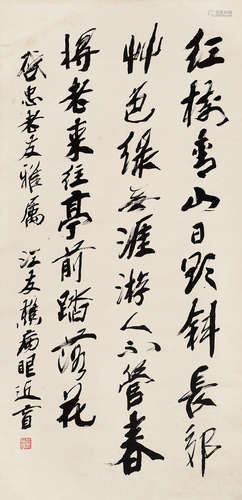 红樹青山日欲斜長郊
艸色緑無涯游人不管春
將老来往亭前踏落花
忠老友雅属 江友樵病眼近盲